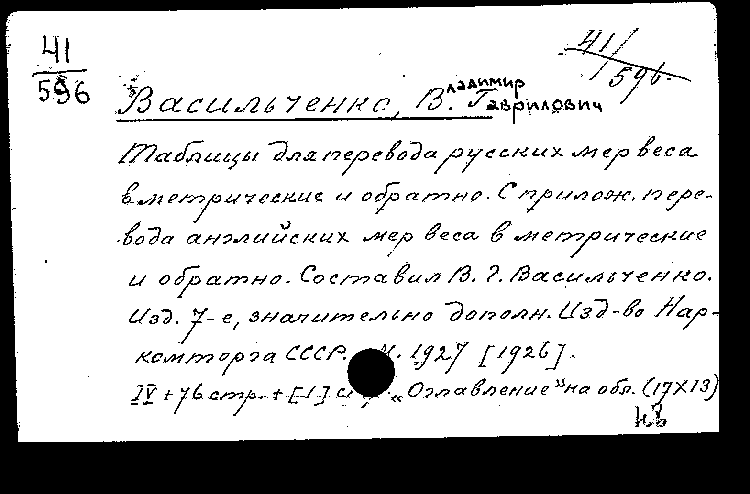 41
596
41/596
Васильченко, Владимир Гаврилович
Таблицы для перевода русских мер веса
в метрические и обратно. С прилож. пере-
вода английских мер веса в метрические
и обратно. Составил В. Г. Васильченко.
Изд. 7-е, значительно дополн. Изд-во Нар-
комторга СССР. М. 1927 [1926].
IV + 76 стр. + [1] с „Оглавление" на обл. (17X13)